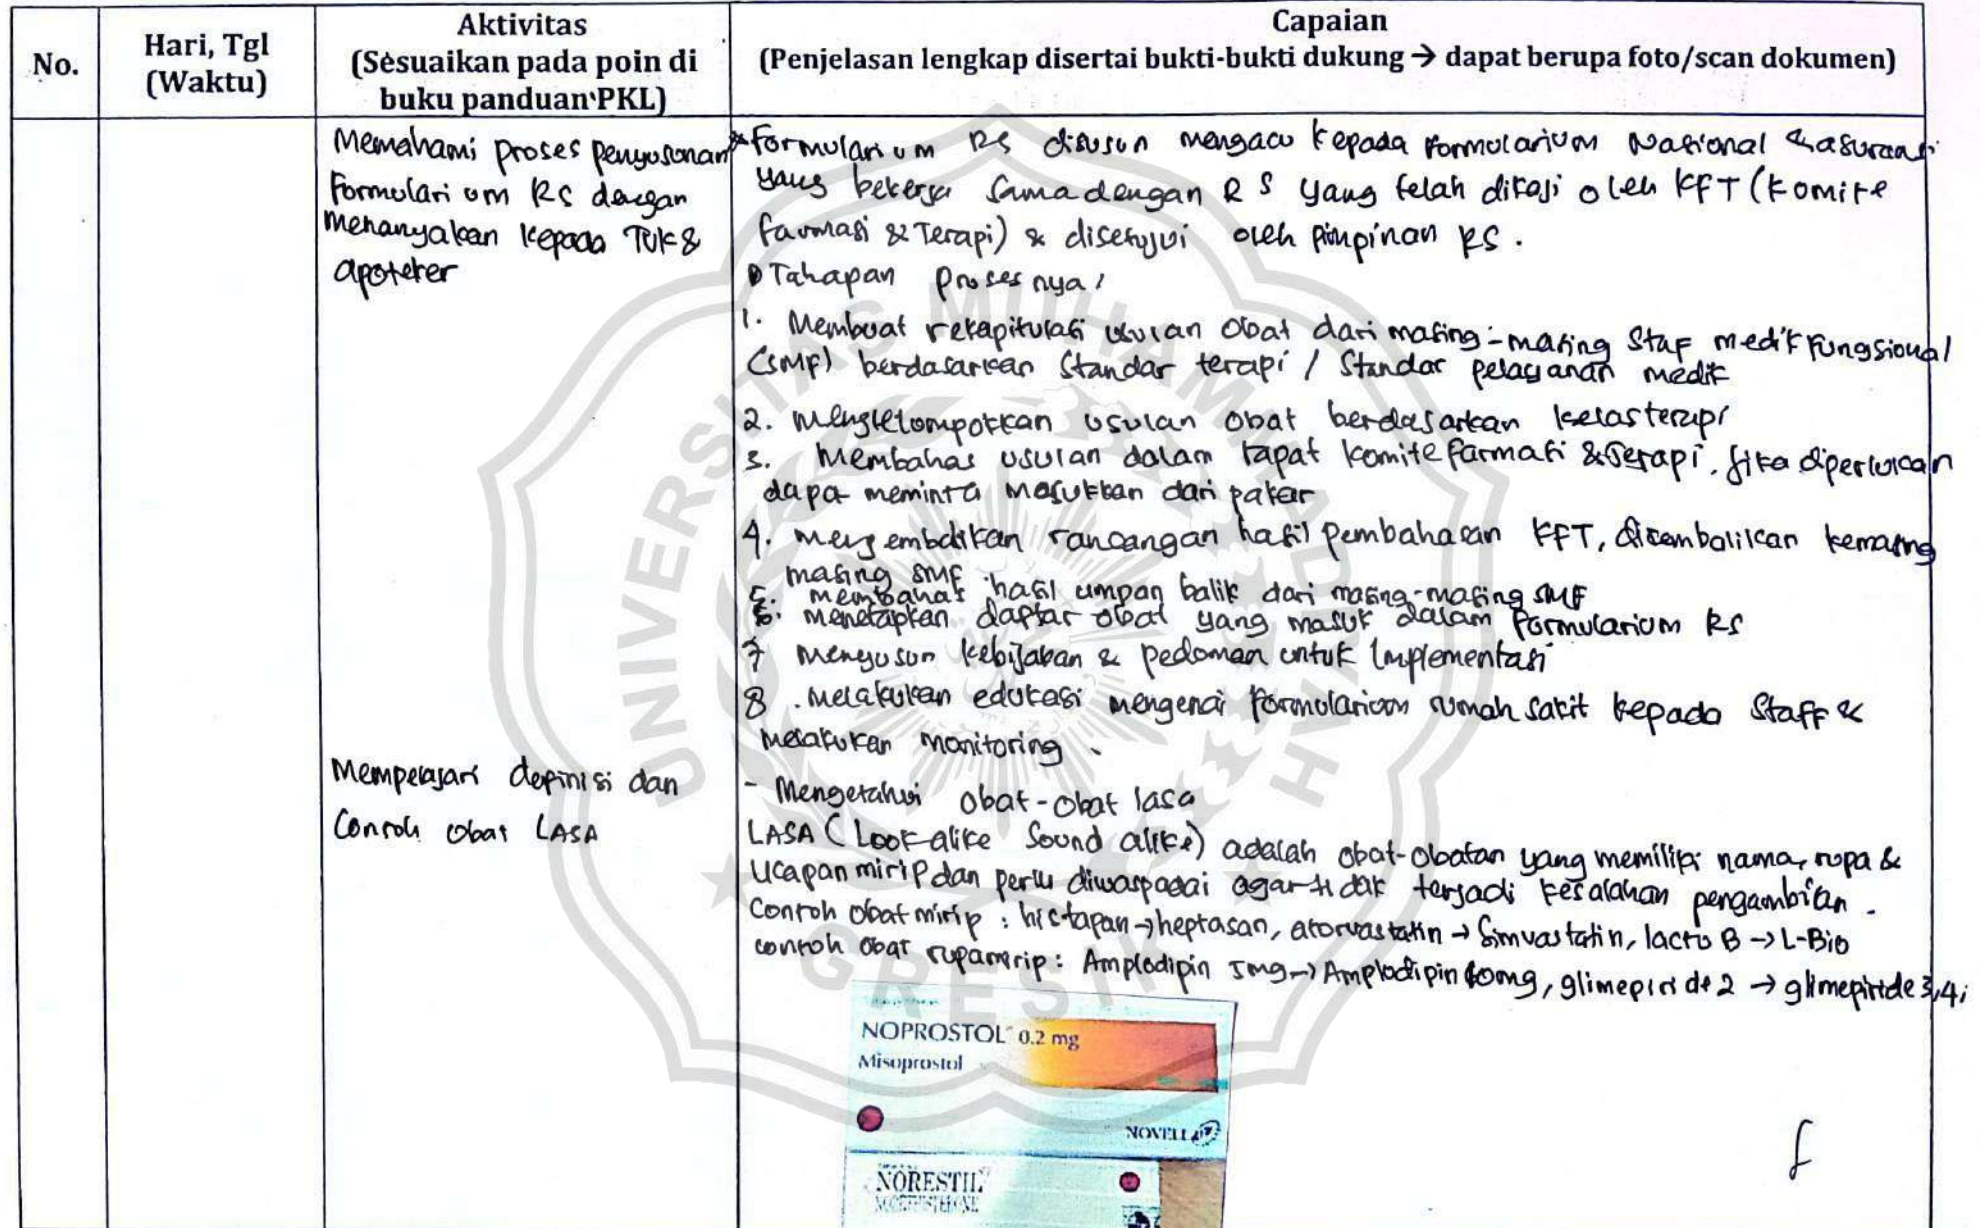 No.
Hari, Tgl
(Waktu)
Aktivitas
(Sesuaikan pada poin di
buku panduan PKL)
Capaian
(Penjelasan lengkap disertai bukti-bukti dukung → dapat berupa foto/scan dokumen)
Memahami proses penyusunan
Formularium RS dengan
menanyakan kepada TUK &
apoteker
* Formularium RS disusun mengacu kepada Formularium Nasional & asuransi
yang bekerja sama dengan RS yang telah dikaji oleh KFT (Komite
Farmasi & Terapi) & disetujui oleh pimpinan RS.
Tahapan prosesnya:
1. Membuat rekapitulasi usulan obat dari masing-masing Staf medik Fungsional
(SMF) berdasarkan Standar terapi / Standar pelayanan medik
2. Mengelompokkan usulan obat berdasarkan kelas terapi
3. Membahas usulan dalam rapat komite farmasi & Terapi, jika diperlukan
dapa meminta masukkan dari pakar
4. mengembalikan rancangan hasil pembahasan KFT, dikembalikan kemasing
masing SMF
5. membahas hasil umpan balik dari masing-masing SMF
6. menetapkan daftar obat yang masuk dalam Formularium RS
7 menyusun kebijakan & pedoman untuk Implementasi
8. melakukan edukasi mengenai Formularium rumah sakit kepada Staff &
melakukan monitoring.
Mempelajari definisi dan
Contoh obat LASA
- Mengetahui obat-obat lasa
LASA (Look alike Sound alike) adalah obat-obatan yang memiliki nama, rupa &
Ucapan mirip dan perlu diwaspadai agar tidak terjadi kesalahan pengambilan.
Contoh obat mirip : histapan → heptasan, atorvastatin → Simvastatin, lacto B → L-Bio
contoh obat rupa mirip : Amplodipin 5mg → Amplodipin 10mg, glimepiride 2 → glimepiride 3,4;
NOPROSTOL 0.2 mg
Misoprostol
NOVELL
NORESTIL
UNIVERSITAS MUHAMMADIYAH
GRESIK